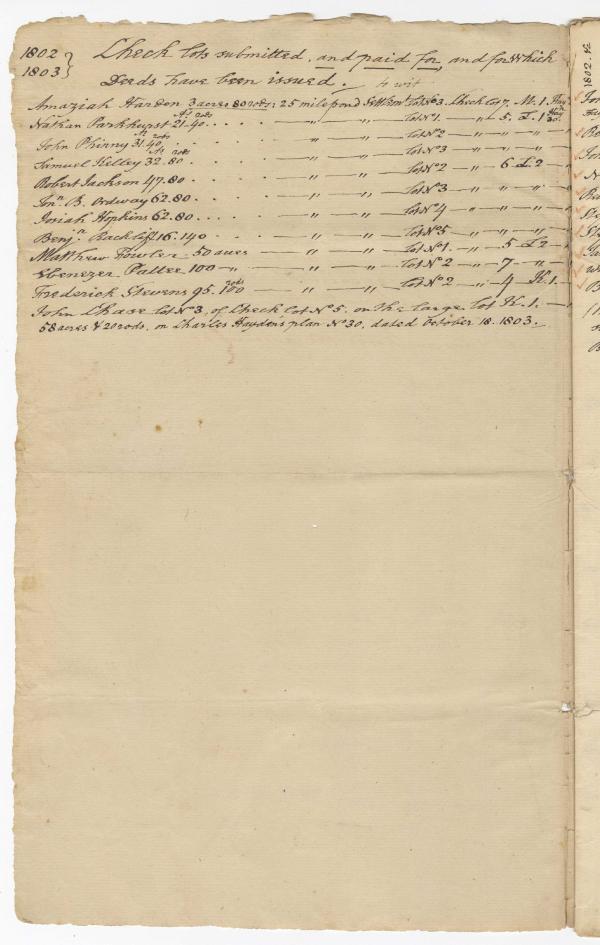 1802 } Check lots submitted, and paid for, and for which
1803 } Deeds have been issued. to wit
Amaziah Harden 3 acres 80 rods: 25 mile pond Settlemt Lot No 3. Check lot 7. M. 1.
As rods
Nathan Parkhurst 21.40. . . . . — " — " — Lot No 1. — " — 5. L. 1
As rods
John Phinny 31.40 . . . . — " — " — Lot No 2 — " — " — "
As rods
Samuel Kelley 32.80. . . . — " — " — Lot No 3 — " — " — "
Robert Jackson 47.80. . . . — " — " — Lot No 2 — " — 6 L. 2 — "
Jonn B. Ordway 62.80. . . . — " — " — Lot No 3 — " — " — "
Josiah Hopkins 62.80. . . . — " — " — Lot No 4 — " — " — "
Benjn Rackliff 16.140 — " — " — Lot No 5 — " — " — "
Matthew Fowler . 50 acres — " — " — Lot No 1. — " — 5 L 2 — "
Ebenezer Pattee 100 — " — " — " — Lot No 2 — " — 7 — " — "
rods
Frederick Stevens 95. 100 — " — " — Lot No 2 — " — 4 K. 1.
John Chase Lot No 3, of Check lot No 5. on the large Lot K. 1. —
58 acres & 20 rods, on Charles Hayden's plan No 30, dated October 18. 1803.
1802. &